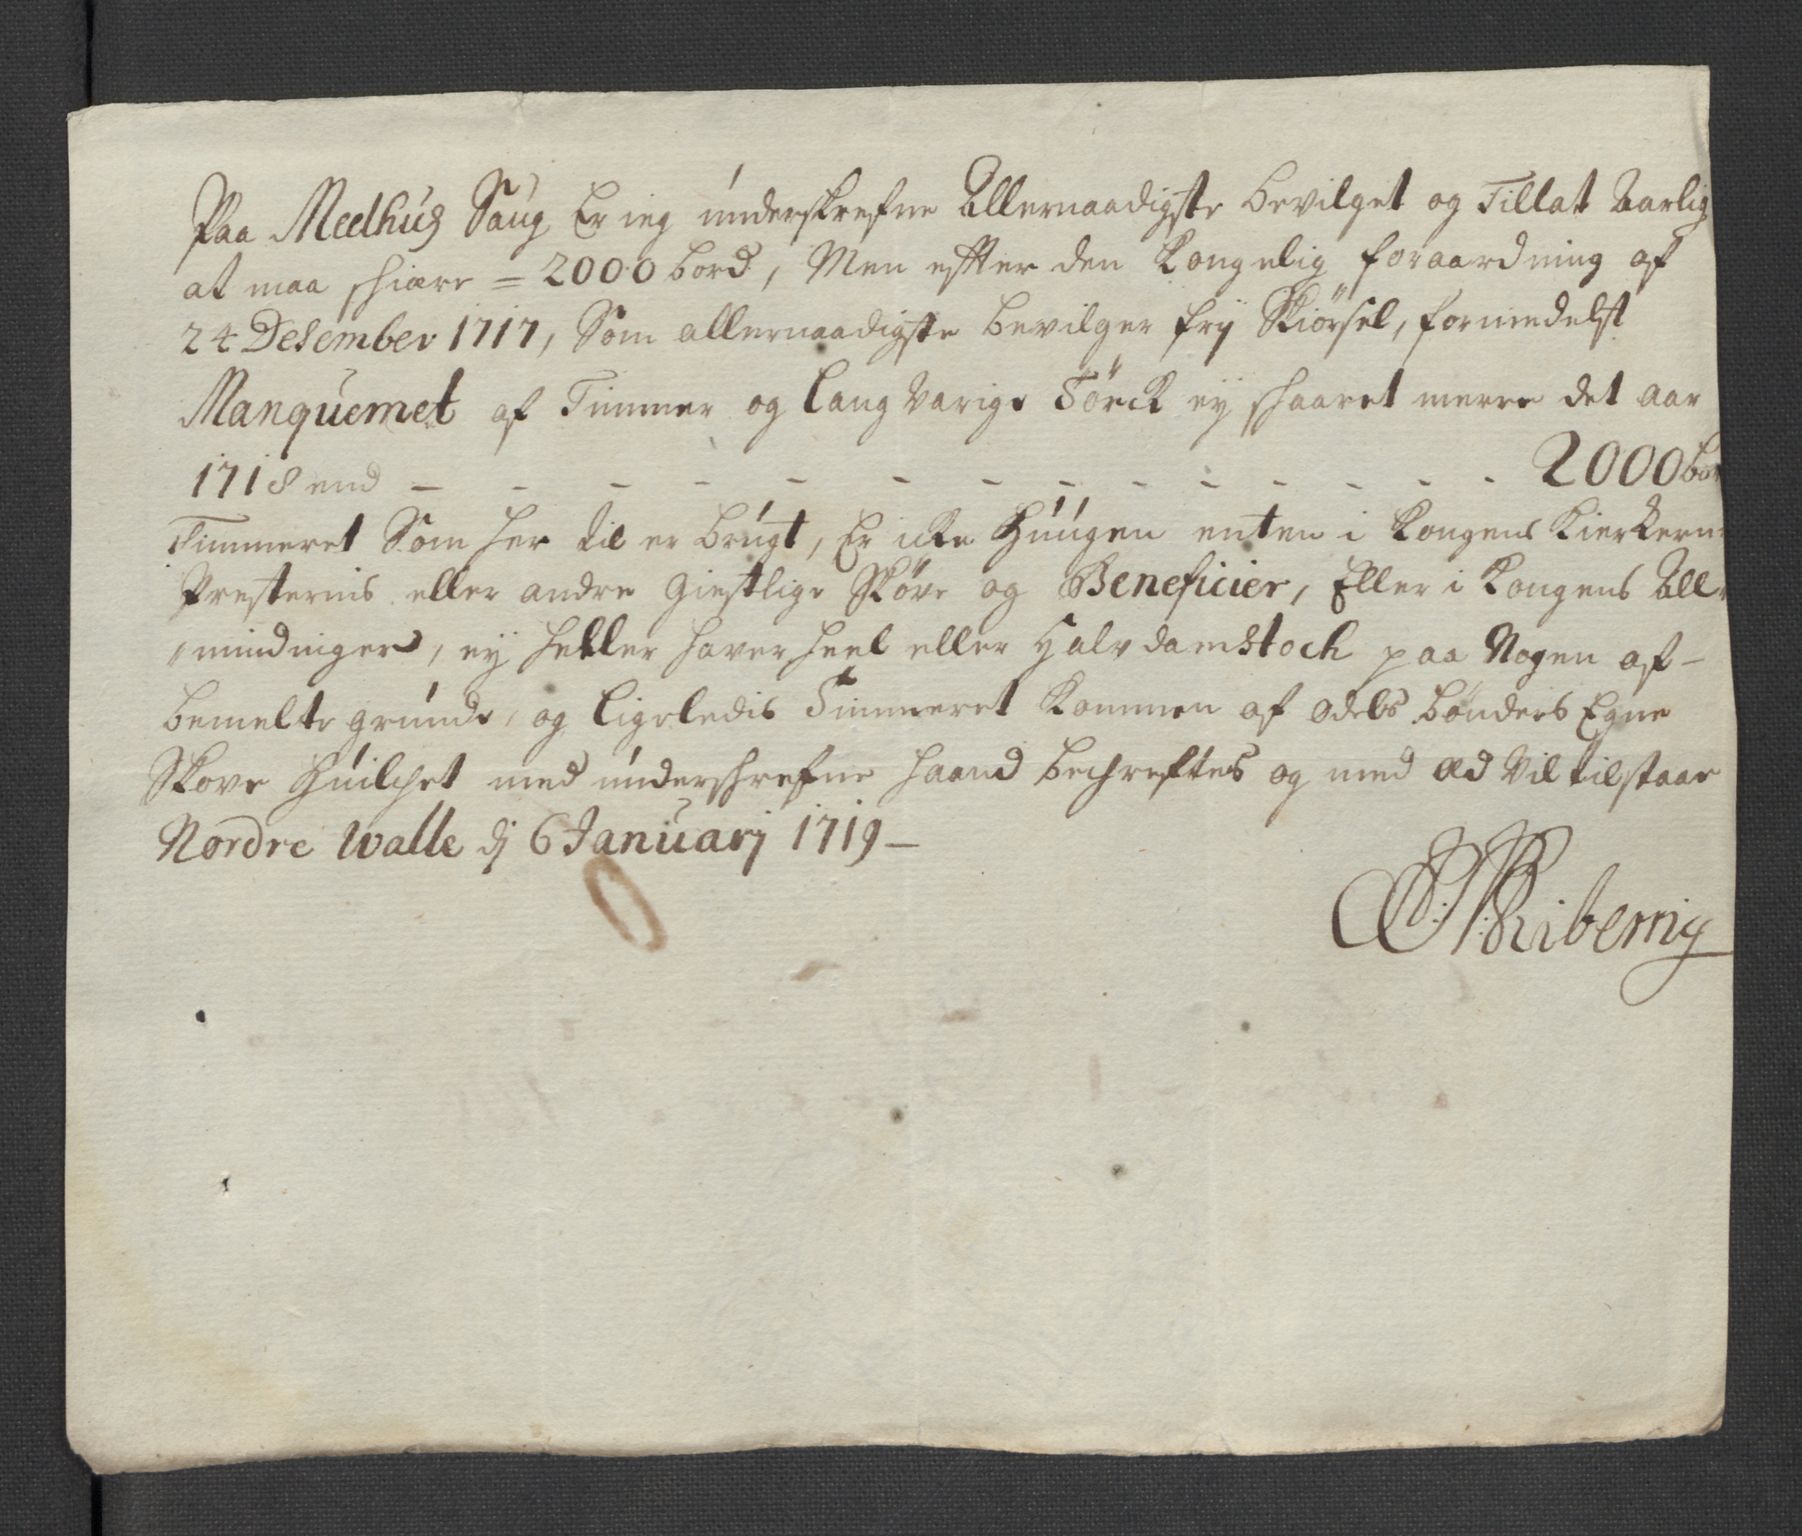 Paa Meelhus Saug Er ieg underskrefne Allernaadigste bevilget og Tillat Aarlig
at maa skiære = 2000 bord, Men effter den Kongelig foraardning af
24 Desember 1717, Som allernaadigste bevilger frij Skiörsel, formedelst
Manquemet af Timmer og langvarige Törck eij skaaret merre det aar
1718 end - - - - - - - - - - - - - - 2000 bor
Timmeret Som her til er brugt, Er icke Huugen enten i Kongens Kierkern
Presternis eller andre Giestlige Sköve og Beneficier, Eller i Kongens All
mindninger, eij heller haver heel eller halv damstock paa Nogen af-
bemelte grunde, og ligeledis Timmeret Kommen af odels bönders Egne
Skove Huilchet med underschrefne haand bechreftes og med æd vil tilstaae
Nordre Walle dj 6 Januarj 1719 -
Riberrig